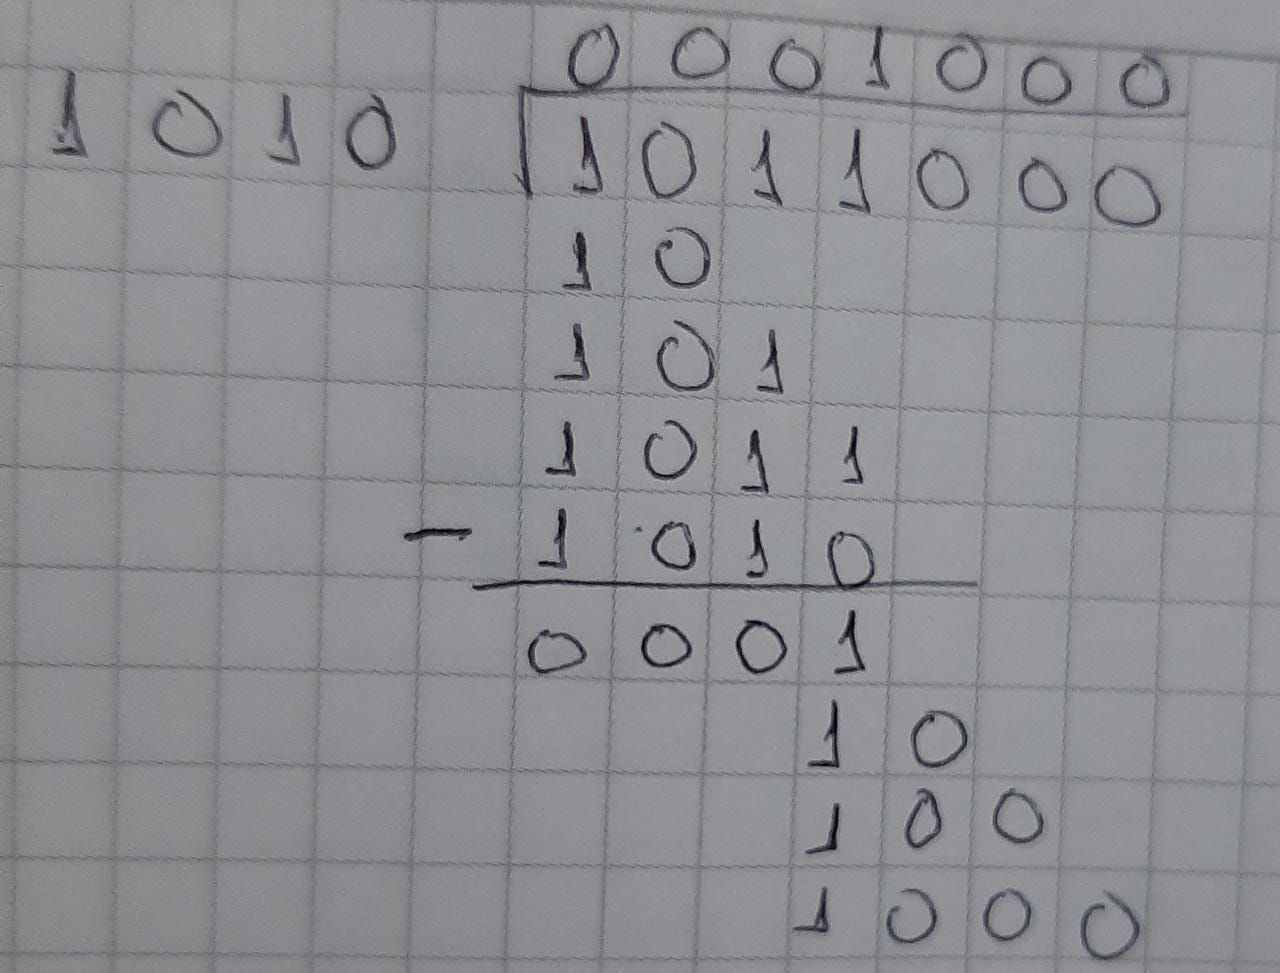 0 0 0 1 0 0 0
1 0 1 0 1 0 1 1 0 0 0
1 0
1 0 1
1 0 1 1
- 1 0 1 0
0 0 0 1
1 0
1 0 0
1 0 0 0